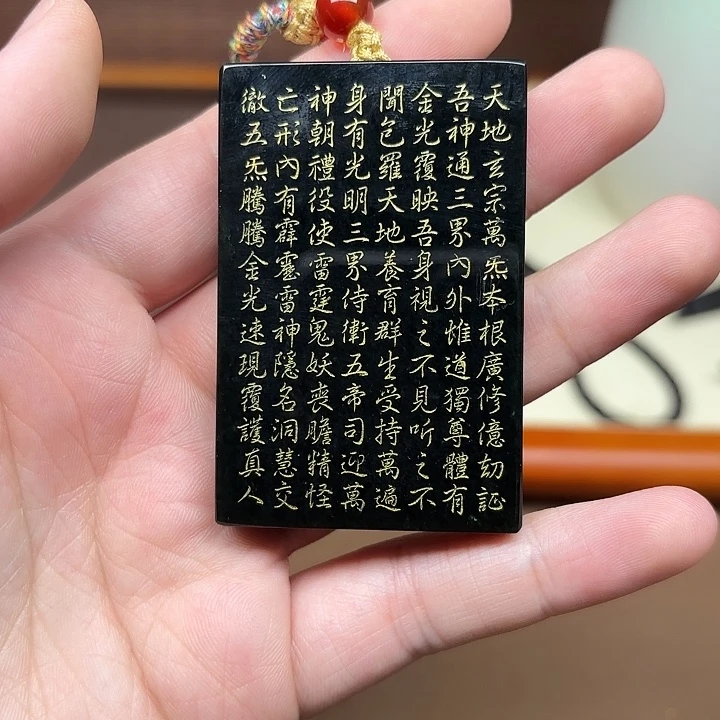 天地玄宗萬炁本根廣修億劫証
吾神通三界內外惟道獨尊體有
金光覆映吾身視之不見听之不
聞包羅天地養育群生受持萬遍
身有光明三界侍衛五帝司迎萬
神朝禮役使雷霆鬼妖喪膽精怪
亡形內有霹靂雷神隱名洞慧交
徹五炁騰騰金光速現覆護真人